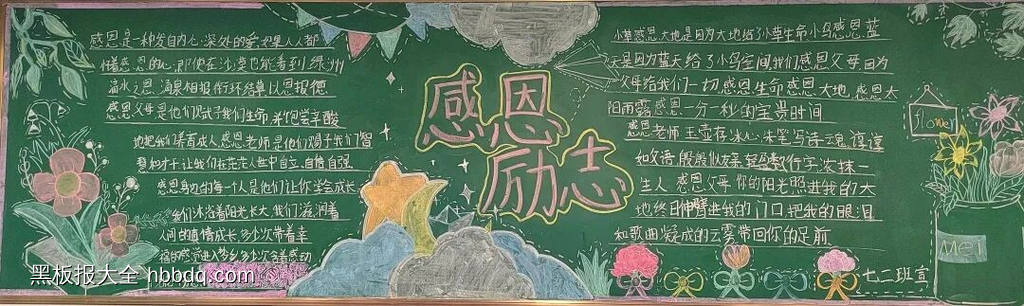 感恩是一种发自内心深处的爱如果人人都
怀感恩的心即使至沙漠也能看到绿洲
滴水之恩涌泉相报衔环结草以恩报德
感恩父母是他们赋予我们生命 来饱尝辛酸
地把我们养育成人感恩老师是他们赐予我们智
慧和才干让我们在茫茫人世中自立自信自强
感恩身边的每一个人是他们让你学会成长
我们沐浴着阳光长大我们滋润着
人间的真情成长多少次带着幸
福的感觉进入梦乡多少次含着感动
感恩
励志
小草感恩大地是因为大地给了小草生命小鸟感恩蓝
天是因为蓝天给了小鸟空间我们感恩父母因为
父母给我们一切感恩生命感恩大地感恩太
阳雨露感恩一分一秒的宝贵时间
感恩老师 玉壶存冰心朱笔写诗魂谆谆
如父语殷殷似友亲轻盈数行字浓抹一
生人 感恩父母 你的阳光照进我的大
地终日伸臂进我的门口把我的眼泪
和歌曲凝成的云雾带回你的足前
flower
Mei
七二班宣
黑板报大全 hbbdq.com